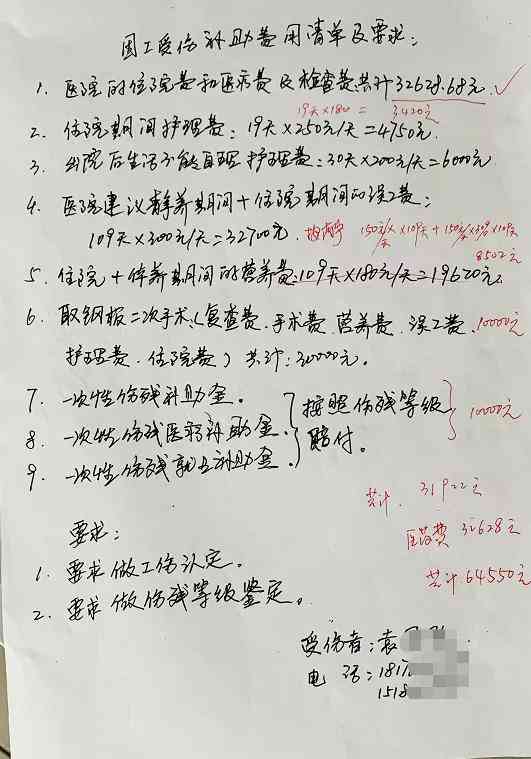 因工受伤补助费用清单及要求：
1. 医院的住院费和医疗费及检查费共计32628.68元 ✓
19天×180 = 3420元
2. 住院期间护理费：19天×250元/天=4750元.
3. 出院后生活不能自理护理费：30天×200元/天=6000元
4. 医院建议静养期间+住院期间的误工费：
109天×300元/天=32700元.
8502元
5. 住院+休养期间的营养费：109天×180元/天=19620元.
6. 取钢板二次手术（复查费.手术费.营养费.误工费. 10000元
护理费.住院费）共计：30000元.
7. 一次性伤残补助金。
8. 一次性伤残医疗补助金. 按照伤残等级 10000元
9. 一次性伤残就业补助金. 赔付.
共计. 31922元
要求： 医药费 32628元
1. 要求做工伤认定。 共计64550元
2. 要求做伤残等级鉴定。
受伤者：袁
电 话：1817
1518